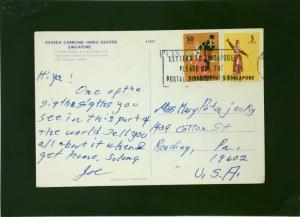 KAVADA CARRYING HINDU DEVOTEE
SINGAPORE
50
5
SINGAPORE
LETTERS TO SINGAPORE
PLEASE USE THE
POSTAL DISTRICT
Hi ya!
One of the
sigths sigths you
see in this part of
the world. Tell you
all about it when I
get home, so long
Joe
Miss Mary
439 Cotton St
Reading, Pa.
19602
U.S.A.